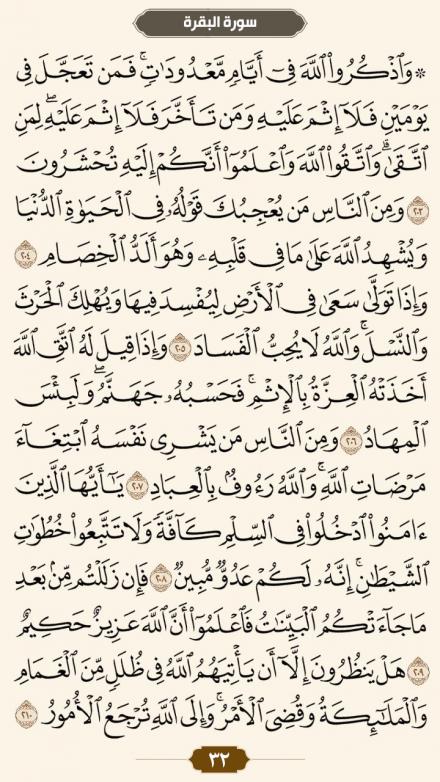 سورة البقرة
* وَٱذْكُرُوا۟ ٱللَّهَ فِىٓ أَيَّامٍ مَّعْدُودَٰتٍ ۚ فَمَن تَعَجَّلَ فِى
يَوْمَيْنِ فَلَآ إِثْمَ عَلَيْهِ وَمَن تَأَخَّرَ فَلَآ إِثْمَ عَلَيْهِ ۖ لِمَنِ
ٱتَّقَىٰ ۗ وَٱتَّقُوا۟ ٱللَّهَ وَٱعْلَمُوٓا۟ أَنَّكُمْ إِلَيْهِ تُحْشَرُونَ
٢٠٣ وَمِنَ ٱلنَّاسِ مَن يُعْجِبُكَ قَوْلُهُۥ فِى ٱلْحَيَوٰةِ ٱلدُّنْيَا
وَيُشْهِدُ ٱللَّهَ عَلَىٰ مَا فِى قَلْبِهِۦ وَهُوَ أَلَدُّ ٱلْخِصَامِ ٢٠٤
وَإِذَا تَوَلَّىٰ سَعَىٰ فِى ٱلْأَرْضِ لِيُفْسِدَ فِيهَا وَيُهْلِكَ ٱلْحَرْثَ
وَٱلنَّسْلَ ۗ وَٱللَّهُ لَا يُحِبُّ ٱلْفَسَادَ ٢٠٥ وَإِذَا قِيلَ لَهُ ٱتَّقِ ٱللَّهَ
أَخَذَتْهُ ٱلْعِزَّةُ بِٱلْإِثْمِ ۚ فَحَسْبُهُۥ جَهَنَّمُ ۚ وَلَبِئْسَ
ٱلْمِهَادُ ٢٠٦ وَمِنَ ٱلنَّاسِ مَن يَشْرِى نَفْسَهُ ٱبْتِغَآءَ
مَرْضَاتِ ٱللَّهِ ۗ وَٱللَّهُ رَءُوفٌۢ بِٱلْعِبَادِ ٢٠٧ يَٰٓأَيُّهَا ٱلَّذِينَ
ءَامَنُوا۟ ٱدْخُلُوا۟ فِى ٱلسِّلْمِ كَآفَّةً وَلَا تَتَّبِعُوا۟ خُطُوَٰتِ
ٱلشَّيْطَٰنِ ۚ إِنَّهُۥ لَكُمْ عَدُوٌّ مُّبِينٌ ٢٠٨ فَإِن زَلَلْتُم مِّنۢ بَعْدِ
مَا جَآءَتْكُمُ ٱلْبَيِّنَٰتُ فَٱعْلَمُوٓا۟ أَنَّ ٱللَّهَ عَزِيزٌ حَكِيمٌ
٢٠٩ هَلْ يَنظُرُونَ إِلَّآ أَن يَأْتِيَهُمُ ٱللَّهُ فِى ظُلَلٍ مِّنَ ٱلْغَمَامِ
وَٱلْمَلَٰٓئِكَةُ وَقُضِىَ ٱلْأَمْرُ ۚ وَإِلَى ٱللَّهِ تُرْجَعُ ٱلْأُمُورُ ٢١٠
٣٢